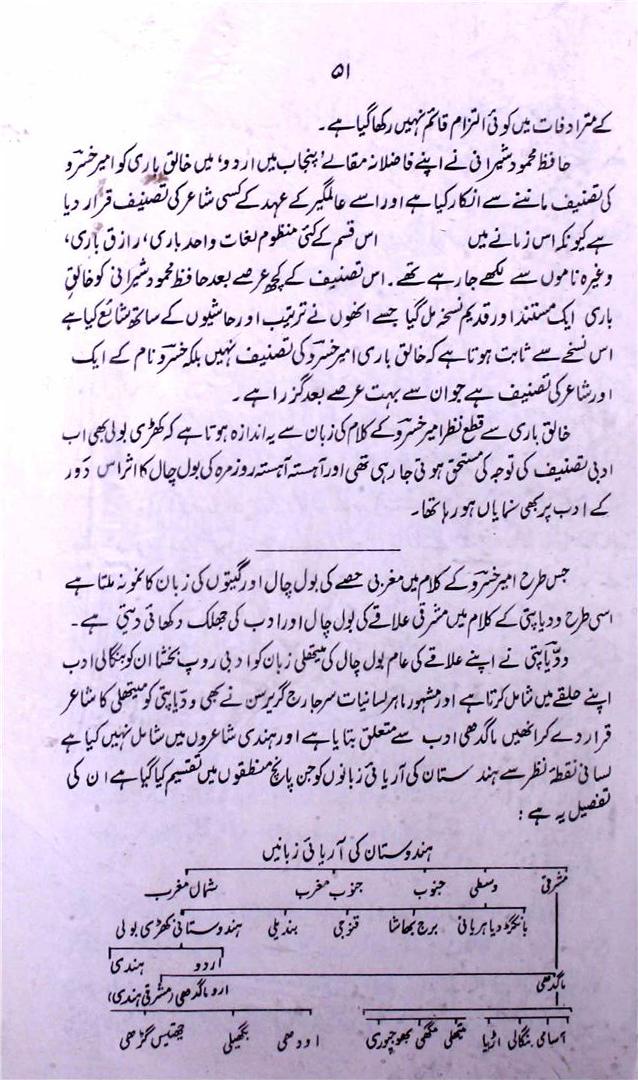 ۵۱
کے مترادفات میں کوئی التزام قائم نہیں رکھا گیا ہے۔
حافظ محمود شیرانی نے اپنے فاضلانہ مقالے ’پنجاب میں اردو‘ میں خالق باری کو امیر خسرو
کی تصنیف ماننے سے انکار کیا ہے اور اسے عالمگیر کے عہد کے کسی شاعر کی تصنیف قرار دیا
ہے کیونکہ اس زمانے میں اس قسم کے کئی منظوم لغات واحد باری، رازق باری،
وغیرہ ناموں سے لکھے جارہے تھے۔ اس تصنیف کے کچھ عرصے بعد حافظ محمود شیرانی کو خالق
باری ایک مستند اور قدیم نسخہ مل گیا جسے انھوں نے ترتیب اور حاشیوں کے ساتھ شائع کیا ہے
اس نسخے سے ثابت ہوتا ہے کہ خالق باری امیر خسرو کی تصنیف نہیں بلکہ خسرو نام کے ایک
اور شاعر کی تصنیف ہے جو ان سے بہت عرصے بعد گزرا ہے۔
خالق باری سے قطع نظر امیر خسرو کے کلام کی زبان سے یہ اندازہ ہوتا ہے کہ کھڑی بولی بھی اب
ادبی تصنیف کی توجہ کی مستحق ہوتی جارہی تھی اور آہستہ آہستہ روزمرہ کی بول چال کا اثر اس دور
کے ادب پر بھی نمایاں ہو رہا تھا۔
جس طرح امیر خسرو کے کلام میں مغربی حصے کی بول چال اور گیتوں کی زبان کا نمونہ ملتا ہے
اسی طرح ودیاپتی کے کلام میں مشرقی علاقے کی بول چال اور ادب کی جھلک دکھائی دیتی ہے۔
ودیاپتی نے اپنے علاقے کی عام بول چال کی میتھلی زبان کو ادبی روپ بخشا ان کو بنگالی ادب
اپنے حلقے میں شامل کرتا ہے اور مشہور ماہر لسانیات سر جارج گریرسن نے بھی ودیاپتی کو میتھلی کا شاعر
قرار دے کر انھیں ماگدھی ادب سے متعلق بتایا ہے اور ہندی شاعروں میں شامل نہیں کیا ہے
لسانی نقطۂ نظر سے ہندستان کی آریائی زبانوں کو جن پانچ منطقوں میں تقسیم کیا گیا ہے ان کی
تفصیل یہ ہے :
ہندوستان کی آریائی زبانیں
مشرقی وسطی جنوب جنوب مغرب شمال مغرب
بانگڑو یا ہریانی برج بھاشا قنوجی بندیلی ہندوستانی کھڑی بولی
اردو ہندی
ماگدھی اردو ماگدھی (مشرقی ہندی)
آسامی بنگالی اڑیا میتھلی مگھی بھوجپوری اودھی بگھیلی چھتیس گڑھی